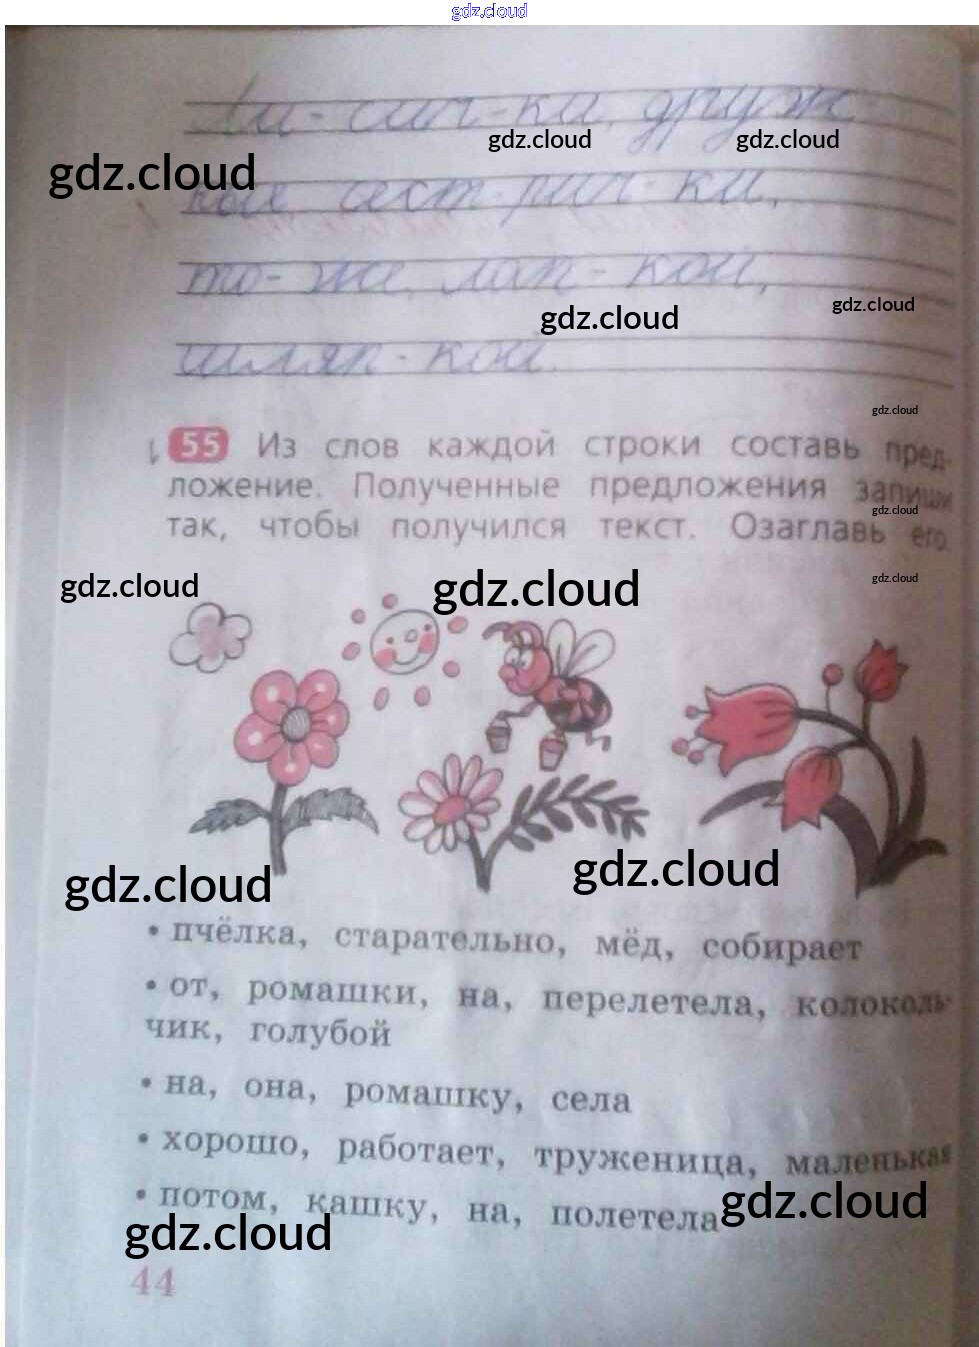 gdz.cloud
Ли-сич-ки, друж
gdz.cloud gdz.cloud
gdz.cloud
ные сест-рич-ки,
то-же, лап-кой,
gdz.cloud
gdz.cloud
шляп-кой.
gdz.cloud
55 Из слов каждой строки составь пред-
ложение. Полученные предложения запиши
gdz.cloud
так, чтобы получился текст. Озаглавь его.
gdz.cloud gdz.cloud gdz.cloud
gdz.cloud gdz.cloud
• пчёлка, старательно, мёд, собирает
• от, ромашки, на, перелетела, колоколь-
чик, голубой
• на, она, ромашку, села
• хорошо, работает, труженица, маленькая
• потом, кашку, на, полетела
gdz.cloud
gdz.cloud
44